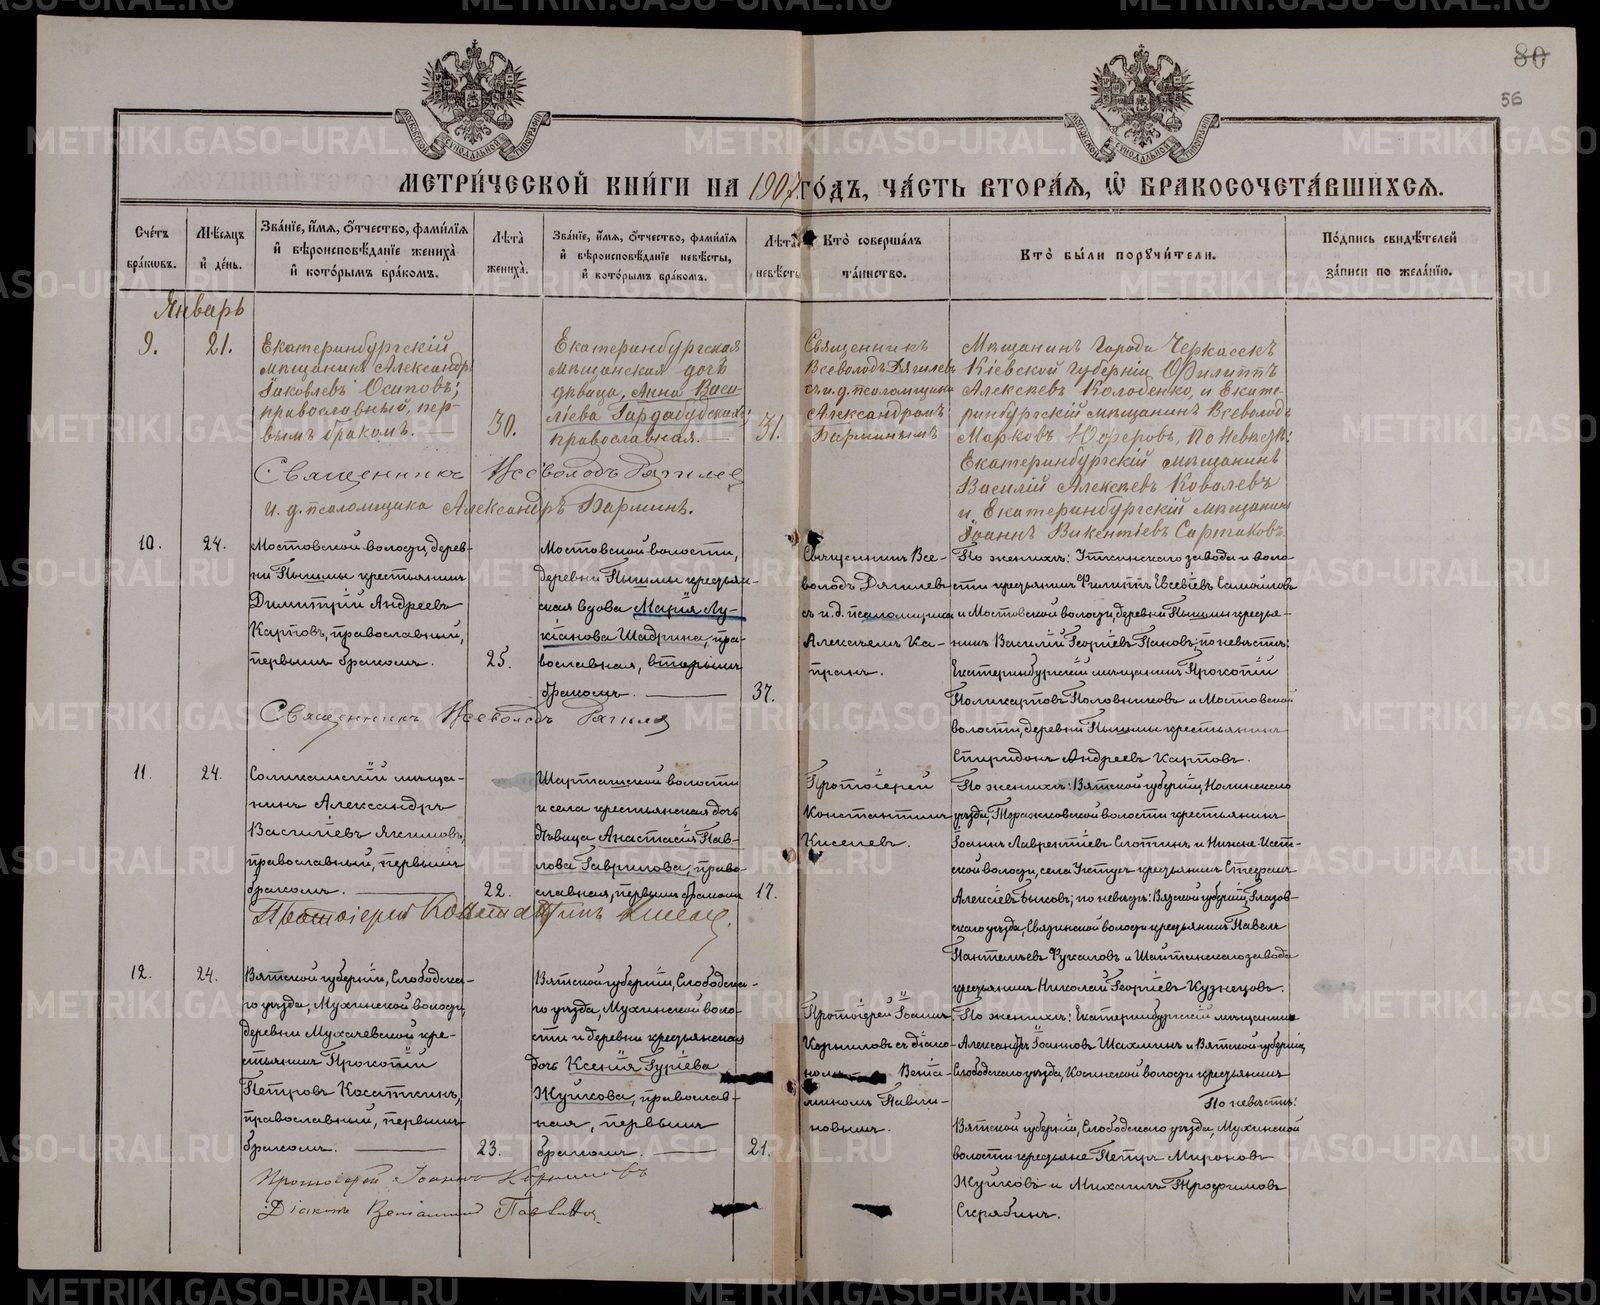 80
56
МЕТРИ́ЧЕСКОЙ КНИ́ГИ НА 1907 ГО́ДЪ, ЧА́СТЬ ВТОРА́Я, Ѡ БРАКОСОЧЕТА́ВШИХСЯ.
Сче́тъ бра́ковъ.
Мѣ́сяцъ и де́нь.
Зва́нїе, и́мя, ѻ́тчество, фами́лїя и вѣроисповѣ́данїе жениха̀ и кото́рымъ бра́комъ.
Лѣ́та жениха̀.
Зва́нїе, и́мя, ѻ́тчество, фами́лїя и вѣроисповѣ́данїе невѣ́сты, и кото́рымъ бра́комъ.
Лѣ́та невѣ́сты
Кто̀ соверша́лъ та́инство.
Кто̀ бы́ли поручи́тели.
По́дпись свидѣ́телей за́писи по жела́нїю.
Январь
9.
21.
Екатеринбургскій
мѣщанинъ Александръ
Іаковлевъ Осиповъ;
православный, пер-
вымъ бракомъ.
30.
Екатеринбургская
мѣщанская дочь
дѣвица, Анна Васи-
ліева
православная.
31.
Священникъ
Всеволодъ Дягилевъ
съ и.д. псаломщика
Александромъ
Барминымъ
Мѣщанинъ города Черкасскъ
Кіевской губерніи Филиппъ
Алексѣевъ Колобенко, и Екате-
ринбургскій мѣщанинъ Всеволодъ
Марковъ Юферовъ, по невѣстѣ:
Екатеринбургскій мѣщанинъ
Василій Алексѣевъ Ковалевъ
и Екатеринбургскій мѣщанинъ
Іоаннъ Викентіевъ Сартаковъ.
Священникъ Всеволодъ Дягилев
и. д. псаломщика Александръ Барминъ.
10.
24.
Мостовской волости, дерев-
ни Пышмы крестьянинъ
Димитрій Андреевъ
Карповъ, православный,
первымъ бракомъ.
25.
Мостовской волости,
деревни Пышмы крестьян-
ская вдова Марія Лу-
кіанова Шадрина, пра-
вославная, вторымъ
бракомъ.
37.
Священникъ Все-
володъ Дягилевъ
съ и.д. псаломщика
Алексѣемъ Ка-
пранъ.
По женихѣ: Уткинскаго завода и воло-
сти крестьянинъ Филиппъ Евсевіевъ Самойловъ
и Мостовской волости, деревни Пышмы крестья-
нинъ Василій Георгіевъ Пановъ; по невѣстѣ:
Екатеринбургскій мѣщанинъ Прокопій
Поликарповъ Половниковъ и Мостовской
волости, деревни Пышмы крестьянинъ
Спиридонъ Андреевъ Карповъ.
Священникъ Всеволодъ Дягилев
11.
24.
Соликамскій мѣща-
нинъ Александръ
Василіевъ Якимовъ,
православный, первымъ
бракомъ.
22.
Шарташской волости
и села крестьянская дочь
дѣвица Анастасія Пав-
лова Гаврилова, право-
славная, первымъ бракомъ
17.
Протоіерей
Константинъ
Киселевъ.
По женихѣ: Вятской губерніи, Нолинскаго
уѣзда, волости крестьянинъ
Іоаннъ Лаврентіевъ и Нижне-Исет-
ской волости, села Уктусъ крестьянинъ Стефанъ
Алексіевъ Быковъ; по невѣстѣ: Вятской губерніи, Глазов-
скаго уѣзда, волости крестьянинъ Павелъ
Пантелѣевъ и Шайтанскаго завода
крестьянинъ Николай Георгіевъ Кузнецовъ.
Протоіерей Константинъ Киселевъ.
12.
24.
Вятской губерніи, Слободска-
го уѣзда, Мухинской волости,
деревни Мухачевской кре-
стьянинъ Прокопій
Петровъ Косаткинъ,
православный, первымъ
бракомъ.
23.
Вятской губерніи, Слободска-
го уѣзда, Мухинской воло-
сти и деревни крестьянская
дочь Ксенія Гуріева
Жуйкова, православ-
ная, первымъ
бракомъ.
21.
Протоіерей Іоаннъ
Корниловъ съ діако-
номъ Веніа-
миномъ Павли-
новымъ.
По женихѣ: Екатеринбургскій мѣщанинъ
Александръ Іоанновъ Шахминъ и Вятской губерніи,
Слободскаго уѣзда, Косинской волости крестьянинъ
По невѣстѣ:
Вятской губерніи, Слободскаго уѣзда, Мухинской
волости крестьяне Петръ Мироновъ
Жуйковъ и Михаилъ Трофимовъ
Скрябинъ.
Протоіерей Іоаннъ Корниловъ
Діаконъ Веніаминъ Павлинов
METRIKI.GASO-URAL.RU